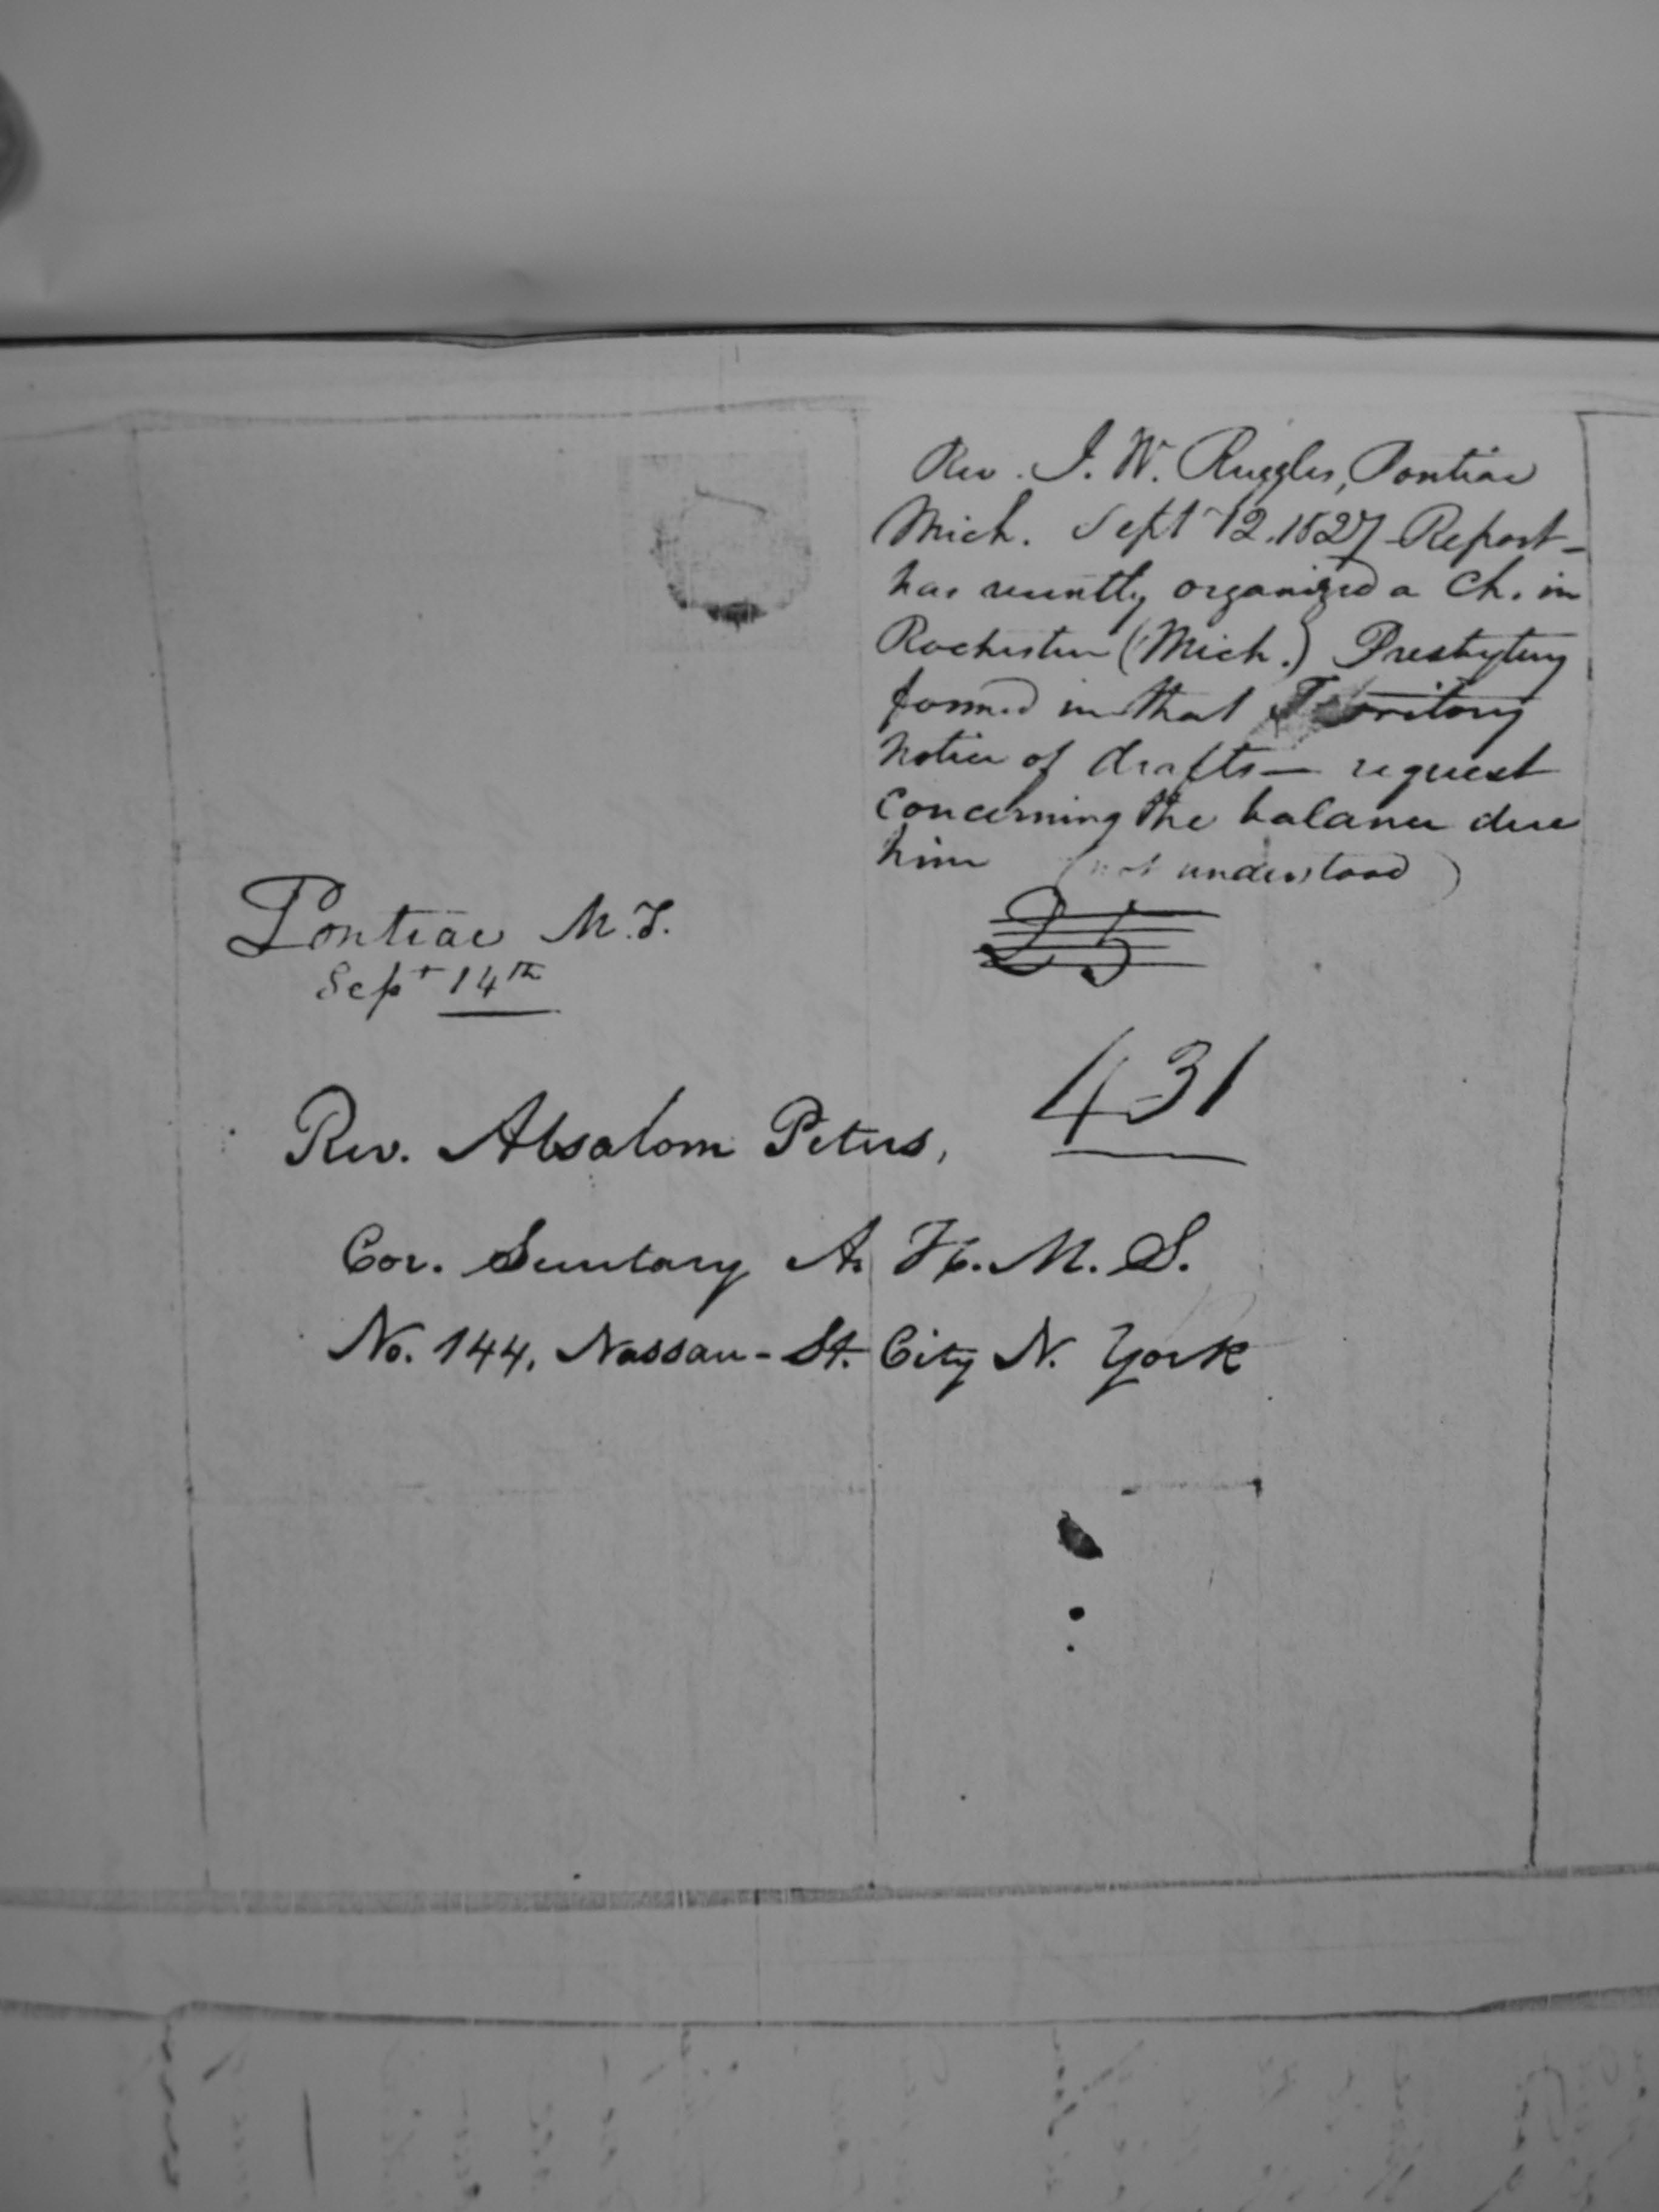 Rev. I. W. Ruggles, Pontiac
Mich. Sept 12. 1827 - Report -
has recently organized a Ch. in
Rochester (Mich.) Presbytery
formed in that Territory
notice of drafts — request
concerning the balance due
him (not understood)
25
Pontiac M.T.
Sept 14th
431
Rev. Absalom Peters,
Cor. Secretary A. H. M. S.
No. 144, Nassau - St. City N. York